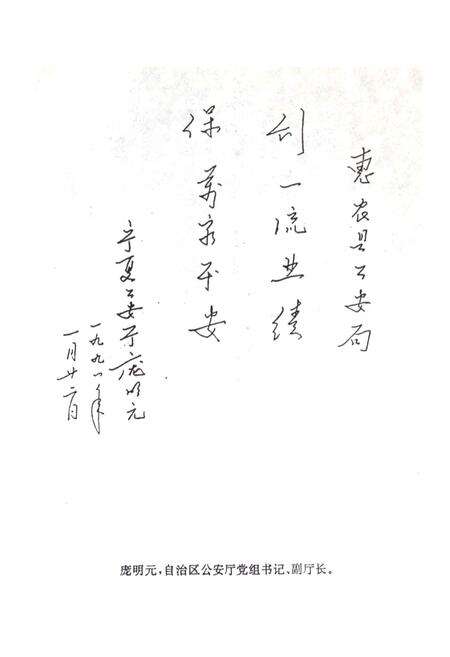 惠农县公安局
创一流业绩
保万家平安
宁夏公安厅庞明元
一九九八年
一月廿二日
庞明元，自治区公安厅党组书记、副厅长。